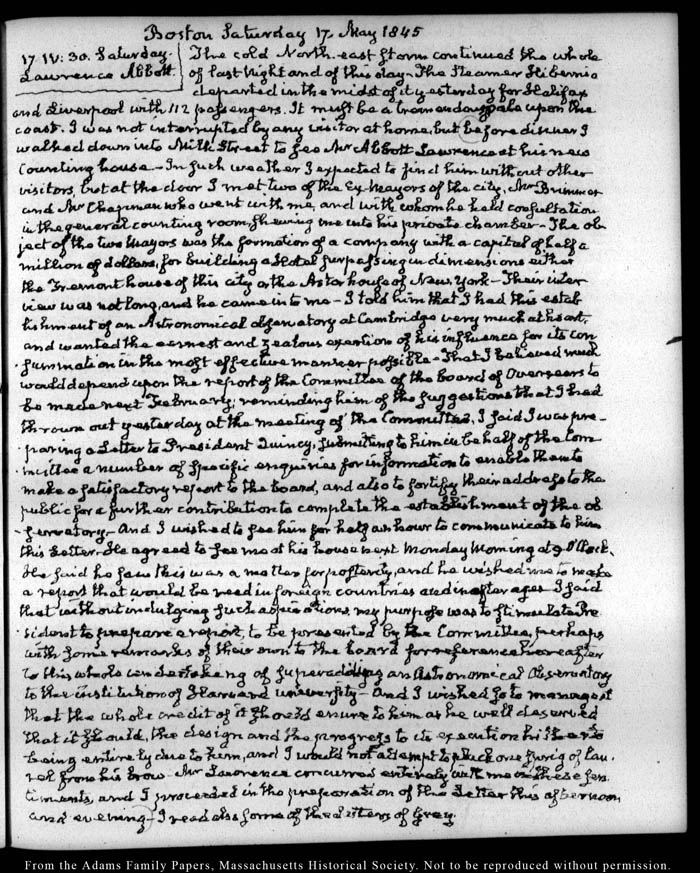 Boston Saturday 17. May 1845
17. IV:30. Saturday.
Lawrence Abbott
The cold North-east storm continued the whole
of last Night and of this day - The Steamer Hibernia
departed in the midst of it yesterday for Halifax
and Liverpool with 112 passengers. It must be a tremendous gale upon the
coast. I was not interrupted by any visitor at home, but before dinner I
walked down into Milk Street to see Mr Abbott Lawrence at his new
Counting house - In such weather I expected to find him without other
visitors, but at the door I met two of the Ex-Mayors of the city, Mr Brimmer
and Mr Chapman who went with me, and with whom he held consultation
in the general counting room, shewing me into his private chamber - The ob-
ject of the two Mayors was the formation of a company with a capital of half a
million of dollars, for building a Hotel surpassing in dimensions either
the Tremont house of this city or the Astor house of New York - Their inter
view was not long, and he came in to me - I told him that I had this estab
lishment of an Astronomical observatory at Cambridge very much at heart,
and wanted the earnest and zealous exertion of his influence for its con
summation in the most effective manner possible - That I believed much
would depend upon the report of the Committee of the board of Overseers to
be made next February; reminding him of the suggestions that I had
thrown out yesterday at the meeting of the Committee, I said I was pre-
paring a Letter to President Quincy, submitting to him in behalf of the Com
mittee a number of specific enquiries for information to enable them to
make a satisfactory report to the board, and also to fortify their address to the
public for a further contribution to complete the establishment of the ob
servatory - And I wished to see him for half an hour to communicate to him
this Letter. He agreed to see me at his house next Monday Morning at 9 O'Clock.
He said he saw this was a matter for posterity, and he wished me to make
a report that would be read in foreign countries and in after ages I said
that without indulging such aspirations, my purpose was to stimulate Pre
sident to prepare a report, to be presented by the Committee, perhaps
with some remarks of their own to the board for reference hereafter
to this whole undertaking of superadding an Astronomical Observatory
to the institution of Harvard university - and I wished so to manage it
that the whole credit of it should ensure to him as he well deserved
that it should, the design and the progress to its execution hitherto
being entirely due to him, and I would not attempt to pluck one sprig of lau-
rel from his brow - Mr Lawrence concurred entirely with me in these sen
timents, and I proceeded in the preparation of the Letter this afternoon
and evening - I read also some of the letters of Gray.
From the Adams Family Papers, Massachusetts Historical Society. Not to be reproduced without permission.